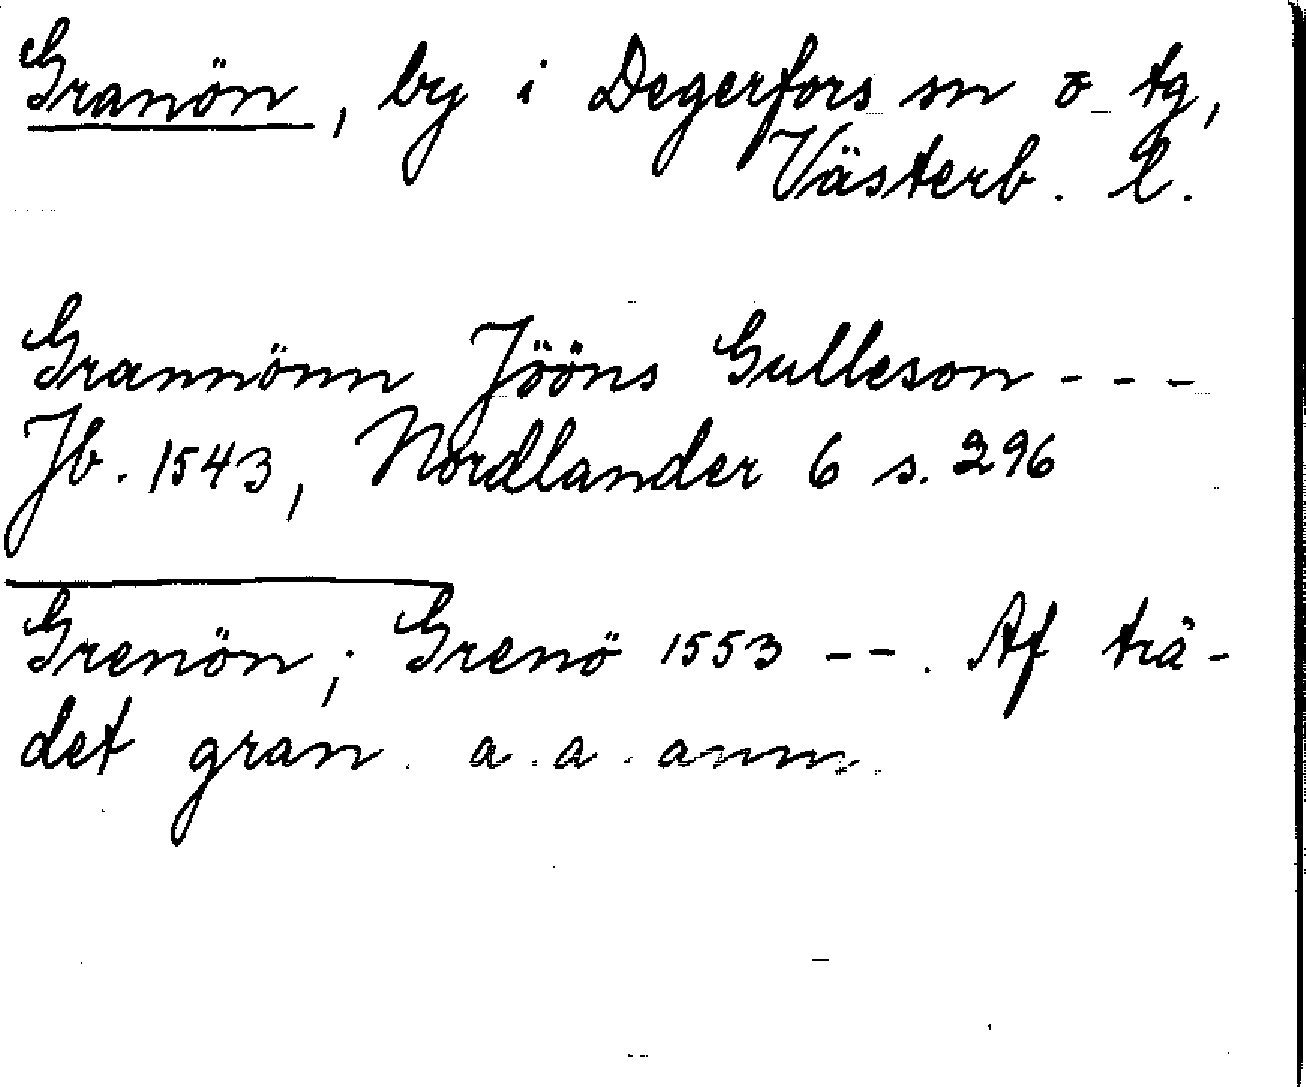 Granön, by i Degerfors sn o tg,
Västerb. l.
Grannönn Jööns Gulleson - - -
Jb. 1543, Nordlander 6 s. 296
Grenön; Grenö 1553 - - . Af trä-
det gran. a. a. anm.